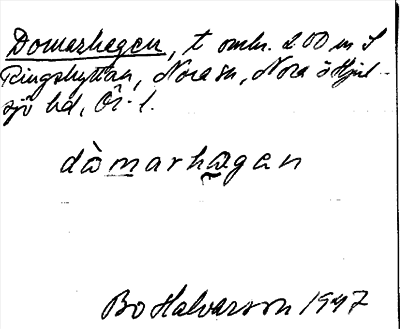 Domarhagen, t omkr. 200 m S
Ringshyttan, Nora sn, Nora o Hjul-
sjö bd, Ör. l.
dòmarhagan
Bo Halvarson 1947